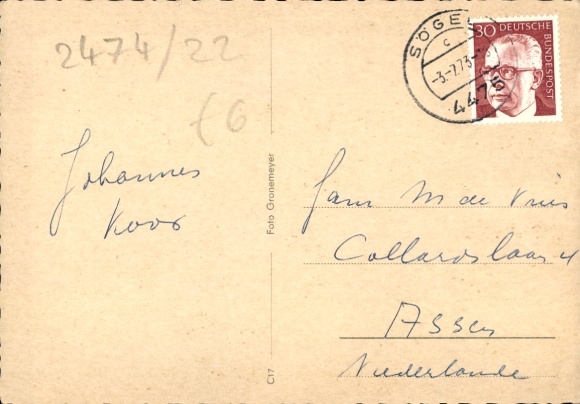 2474/22
€6
Johannes
Koos
SÖGEL
c
-3.-7.73-
4475
30 DEUTSCHE
BUNDESPOST
Foto Gronemeyer
C17
Fam M de Vries
Collardslaan 4
Assen
Niederlande